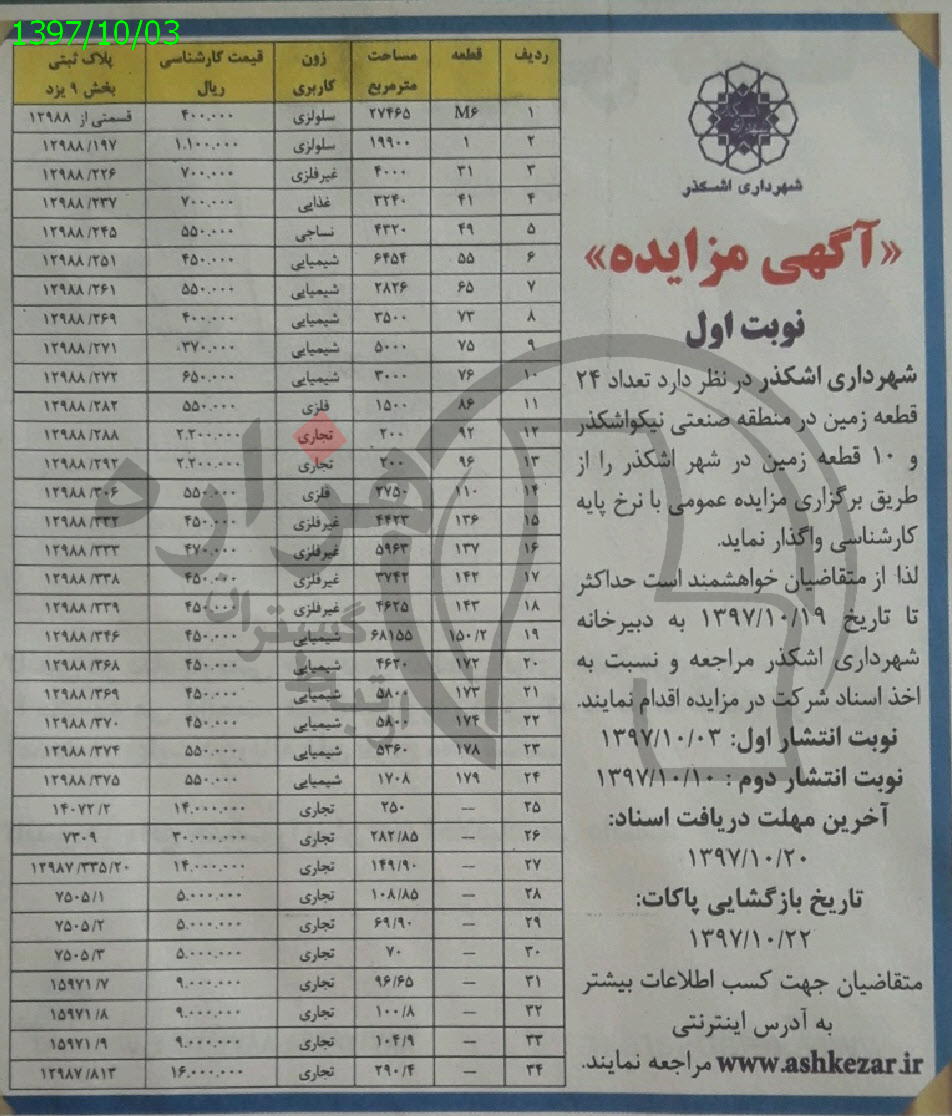 1397/10/03
شهرداری اشکذر
«آگهی مزایده»
نوبت اول
شهرداری اشکذر در نظر دارد تعداد ۲۴
قطعه زمین در منطقه صنعتی نیکواشکذر
و ۱۰ قطعه زمین در شهر اشکذر را از
طریق برگزاری مزایده عمومی با نرخ پایه
کارشناسی واگذار نماید.
لذا از متقاضیان خواهشمند است حداکثر
تا تاریخ ۱۳۹۷/۱۰/۱۹ به دبیرخانه
شهرداری اشکذر مراجعه و نسبت به
اخذ اسناد شرکت در مزایده اقدام نمایند.
نوبت انتشار اول: ۱۳۹۷/۱۰/۰۳
نوبت انتشار دوم : ۱۳۹۷/۱۰/۱۰
آخرین مهلت دریافت اسناد:
۱۳۹۷/۱۰/۲۰
تاریخ بازگشایی پاکات:
۱۳۹۷/۱۰/۲۲
متقاضیان جهت کسب اطلاعات بیشتر
به آدرس اینترنتی
www.ashkezar.ir مراجعه نمایند.
ردیف قطعه مساحت مترمربع زون کاربری قیمت کارشناسی ریال پلاک ثبتی بخش ۹ یزد
۱ M۶ ۲۷۴۶۵ سلولزی ۴۰۰.۰۰۰ قسمتی از ۱۲۹۸۸
۲ ۱ ۱۹۹۰۰ سلولزی ۱.۱۰۰.۰۰۰ ۱۲۹۸۸/۱۹۷
۳ ۳۱ ۴۰۰۰ غیرفلزی ۷۰۰.۰۰۰ ۱۲۹۸۸/۲۲۶
۴ ۴۱ ۳۲۴۰ غذایی ۷۰۰.۰۰۰ ۱۲۹۸۸/۲۳۷
۵ ۴۹ ۴۳۲۰ نساجی ۵۵۰.۰۰۰ ۱۲۹۸۸/۲۴۵
۶ ۵۵ ۶۴۵۴ شیمیایی ۴۵۰.۰۰۰ ۱۲۹۸۸/۲۵۱
۷ ۶۵ ۲۸۲۶ شیمیایی ۵۵۰.۰۰۰ ۱۲۹۸۸/۲۶۱
۸ ۷۳ ۳۵۰۰ شیمیایی ۴۰۰.۰۰۰ ۱۲۹۸۸/۲۶۹
۹ ۷۵ ۵۰۰۰ شیمیایی ۳۷۰.۰۰۰ ۱۲۹۸۸/۲۷۱
۱۰ ۷۶ ۳۰۰۰ شیمیایی ۶۵۰.۰۰۰ ۱۲۹۸۸/۲۷۲
۱۱ ۸۶ ۱۵۰۰ فلزی ۵۵۰.۰۰۰ ۱۲۹۸۸/۲۸۲
۱۲ ۹۲ ۲۰۰ تجاری ۲.۲۰۰.۰۰۰ ۱۲۹۸۸/۲۸۸
۱۳ ۹۶ ۲۰۰ تجاری ۲.۲۰۰.۰۰۰ ۱۲۹۸۸/۲۹۲
۱۴ ۱۱۰ ۲۷۵۰ فلزی ۵۵۰.۰۰۰ ۱۲۹۸۸/۳۰۶
۱۵ ۱۳۶ ۴۴۲۳ غیرفلزی ۴۵۰.۰۰۰ ۱۲۹۸۸/۳۳۲
۱۶ ۱۳۷ ۵۹۶۳ غیرفلزی ۴۷۰.۰۰۰ ۱۲۹۸۸/۳۳۳
۱۷ ۱۴۲ ۳۷۴۲ غیرفلزی ۴۵۰.۰۰۰ ۱۲۹۸۸/۳۳۸
۱۸ ۱۴۳ ۴۶۲۵ غیرفلزی ۴۵۰.۰۰۰ ۱۲۹۸۸/۳۳۹
۱۹ ۱۵۰/۲ ۶۸۱۵۵ شیمیایی ۴۵۰.۰۰۰ ۱۲۹۸۸/۳۴۶
۲۰ ۱۷۲ ۴۶۲۰ شیمیایی ۴۵۰.۰۰۰ ۱۲۹۸۸/۳۶۸
۲۱ ۱۷۳ ۵۸۰۰ شیمیایی ۴۵۰.۰۰۰ ۱۲۹۸۸/۳۶۹
۲۲ ۱۷۴ ۵۸۰۰ شیمیایی ۴۵۰.۰۰۰ ۱۲۹۸۸/۳۷۰
۲۳ ۱۷۸ ۵۳۶۰ شیمیایی ۵۵۰.۰۰۰ ۱۲۹۸۸/۳۷۴
۲۴ ۱۷۹ ۱۷۰۸ شیمیایی ۵۵۰.۰۰۰ ۱۲۹۸۸/۳۷۵
۲۵ — ۲۵۰ تجاری ۱۴.۰۰۰.۰۰۰ ۱۴۰۷۲/۲
۲۶ — ۲۸۲/۸۵ تجاری ۳۰.۰۰۰.۰۰۰ ۷۳۰۹
۲۷ — ۱۴۹/۹۰ تجاری ۱۴.۰۰۰.۰۰۰ ۱۲۹۸۷/۳۳۵/۲۰
۲۸ — ۱۰۸/۸۵ تجاری ۵.۰۰۰.۰۰۰ ۷۵۰۵/۱
۲۹ — ۶۹/۹۰ تجاری ۵.۰۰۰.۰۰۰ ۷۵۰۵/۲
۳۰ — ۷۰ تجاری ۵.۰۰۰.۰۰۰ ۷۵۰۵/۳
۳۱ — ۹۶/۶۵ تجاری ۹.۰۰۰.۰۰۰ ۱۵۹۷۱/۷
۳۲ — ۱۰۰/۸ تجاری ۹.۰۰۰.۰۰۰ ۱۵۹۷۱/۸
۳۳ — ۱۰۴/۹ تجاری ۹.۰۰۰.۰۰۰ ۱۵۹۷۱/۹
۳۴ — ۲۹۰/۴ تجاری ۱۶.۰۰۰.۰۰۰ ۱۲۹۸۷/۸۱۳
هزاره
گستران